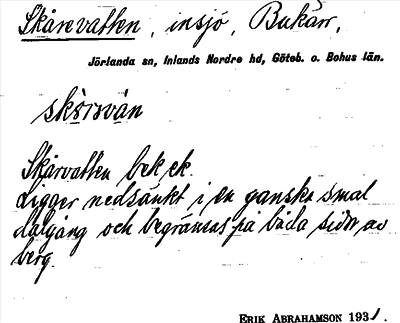 Skårevatten, insjö, Bukärr,
Jörlanda sn, Inlands Nordre hd, Göteb. o. Bohus län.
skörsván
Skårvatten bek ek.
Ligger nedsänkt i en ganska smal
dalgång och begränsas på båda sidor av
berg.
ERIK ABRAHAMSON 1931.